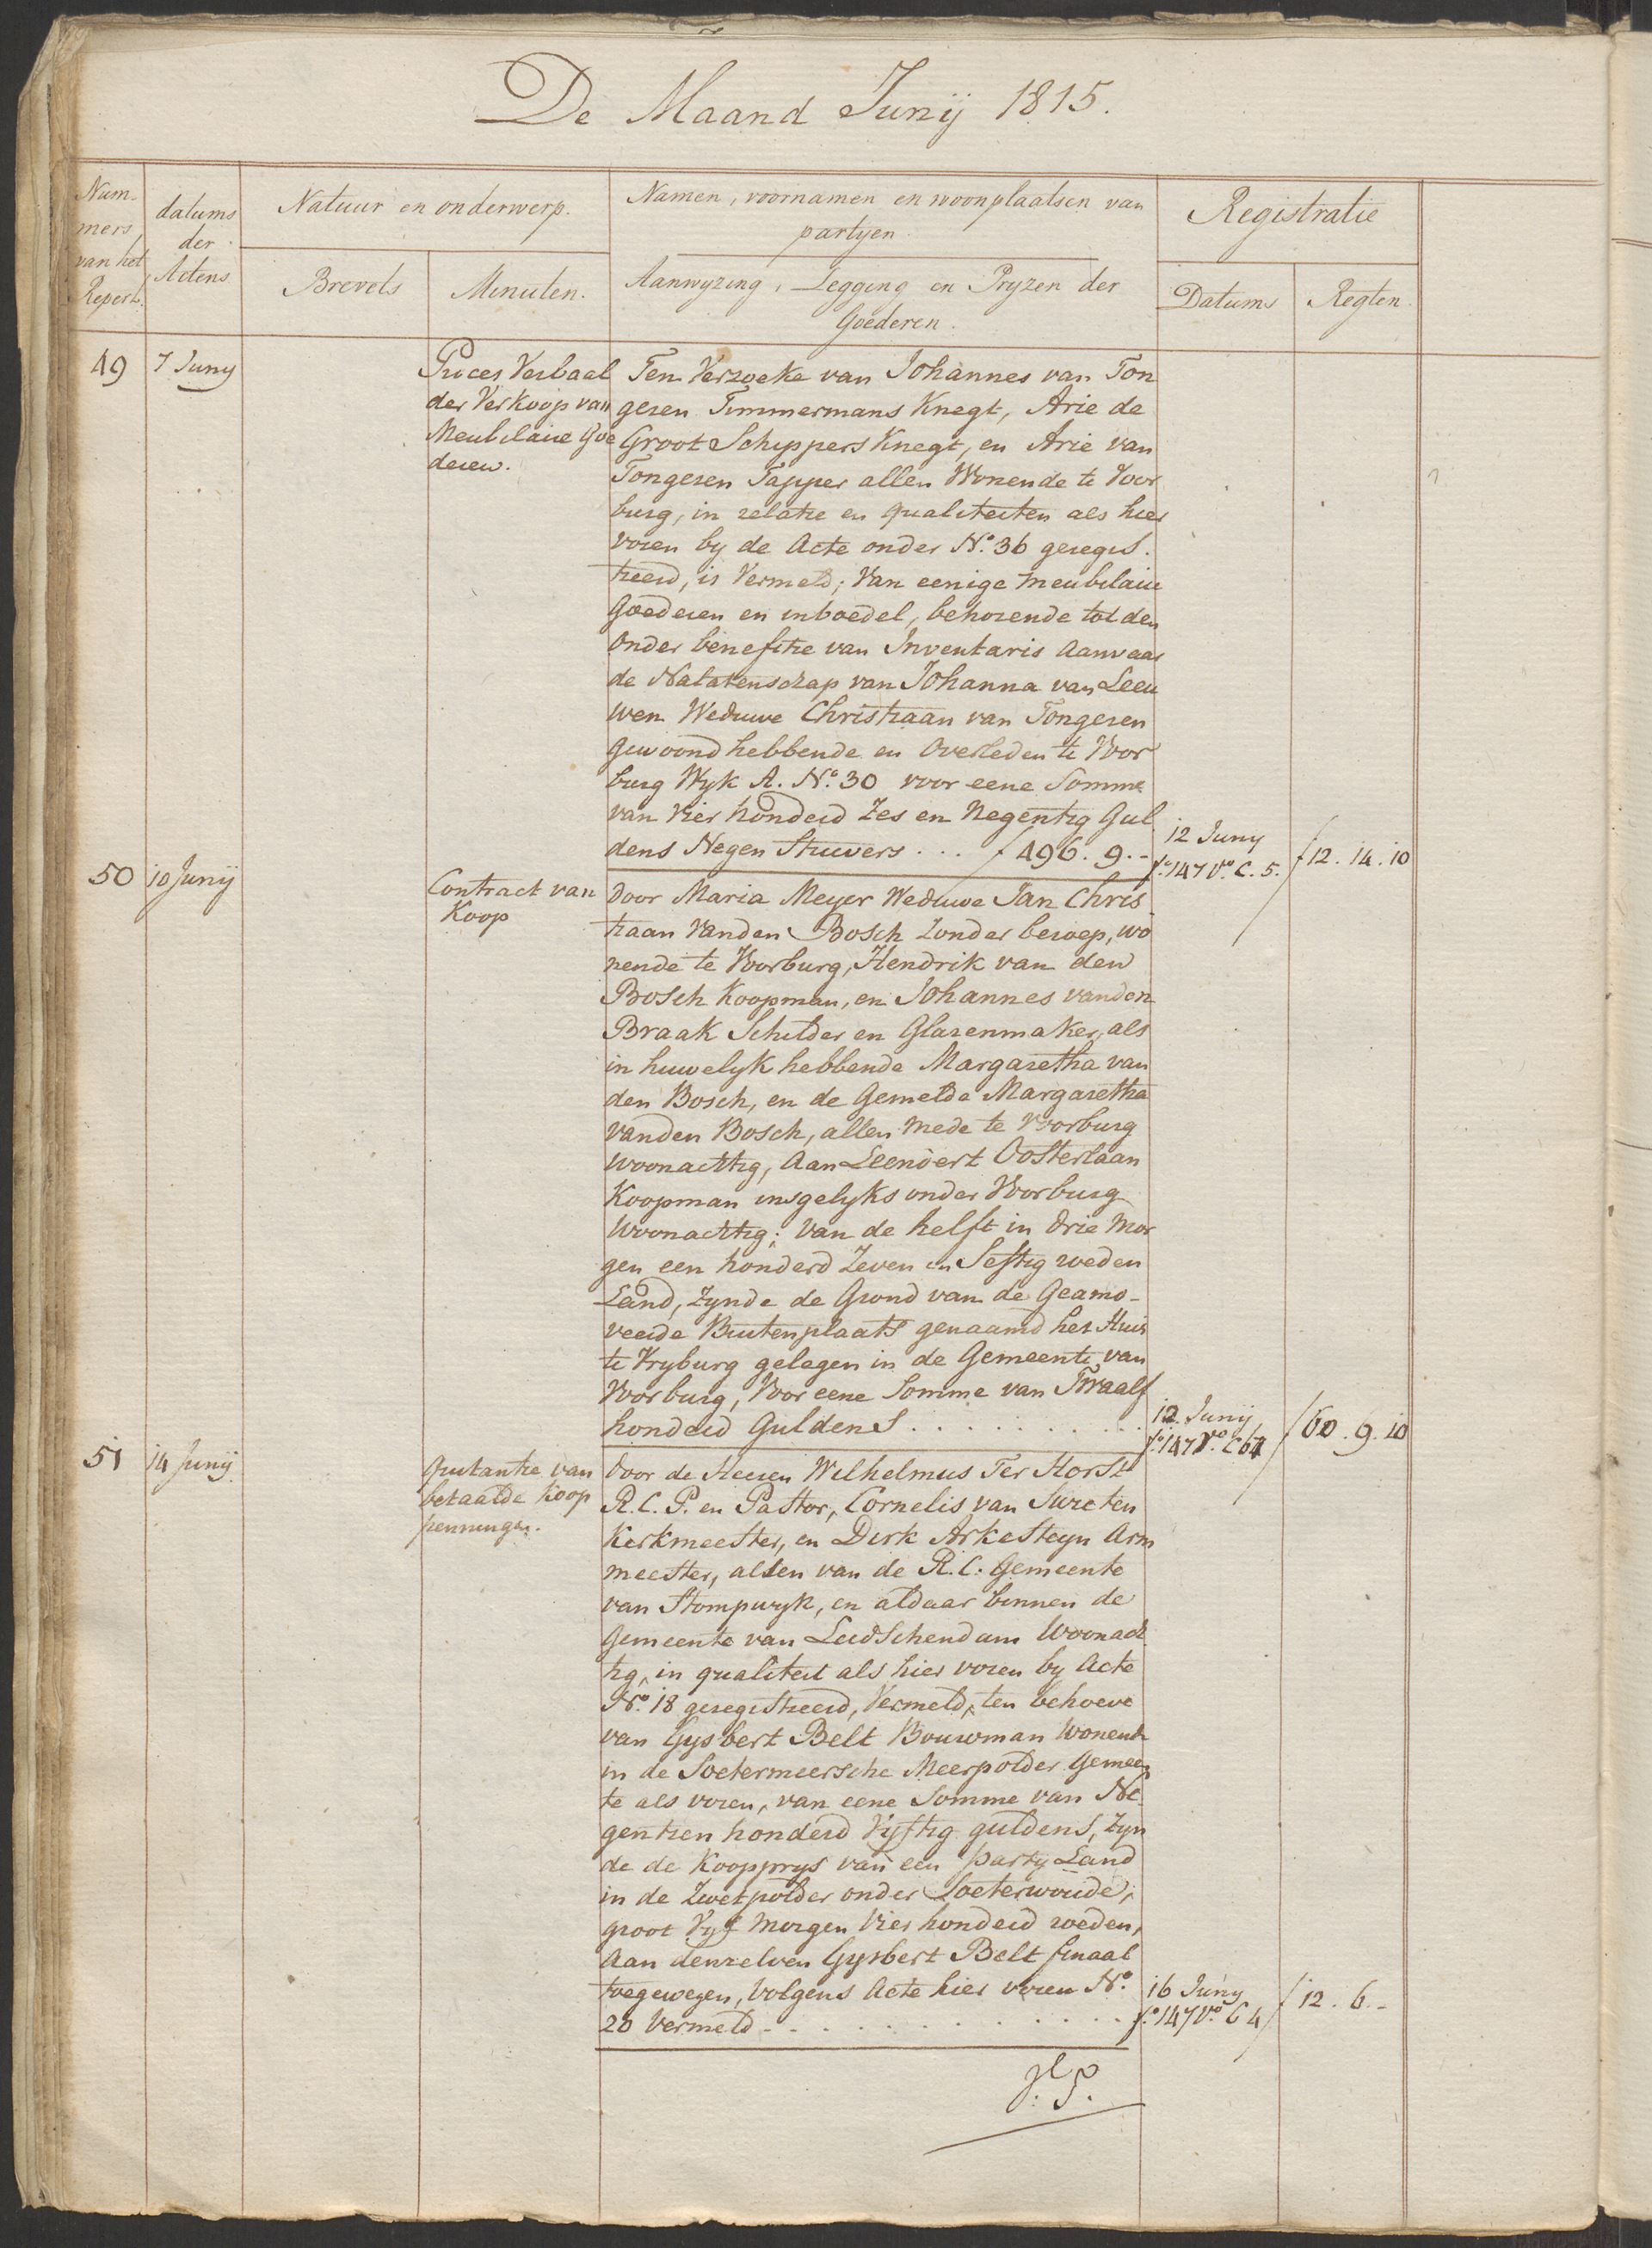 De Maand Junij 1815.
Num-
mers
van het
Repert.
datums
der
Actens
Natuur en onderwerp.
Brevets
Minuten.
Namen, voornamen en woonplaatsen van
partyen
Aanwyzing, Legging en Pryzen der
Goederen.
Registratie
Datums
Regten.
49
7 Juny
Proces Verbaal
der Verkoop van
Meubilaire Goe
deren.
Ten Verzoeke van Johannes van Ton
geren Timmermans Knegt, Arie de
Groot Schippers Knegt, en Arie van
Tongeren Tapper allen Wonende te Voor
burg, in relatie en qualiteiten als hier
voren by de Acte onder No. 36 geregis.
treerd, is Vermeld; Van eenige meubilaire
Goederen en inboedel, behorende tot den
onder benefitie van Inventaris Aanvaar
de Nalatenschap van Johanna van Leeu
wen Weduwe Christiaan van Tongeren
Gewoond hebbende en Overleden te Voor
burg Wyk A. No. 30 voor eene Somme
van Vier honderd Zes en Negentig Gul
dens Negen Stuivers . . . f 496. 9. -
12 Juny
fo. 147 Vo. C. 5.
f 12. 14. 10
50
10 Junij
Contract van
Koop
Door Maria Meyer Weduwe Jan Chris
tiaan Vanden Bosch Zonder beroep, wo
nende te Voorburg, Hendrik van den
Bosch Koopman, en Johannes vanden
Braak Schilder en Glazenmaker, als
in huwelyk hebbende Margaretha van
den Bosch, en de Gemelde Margaretha
vanden Bosch, allen mede te Voorburg
Woonachtig, Aan Leendert Oosterlaan
Koopman insgelyks onder Voorburg
Woonachtig; Van de helft in drie Mor
gen een honderd Zeven en Sestig roeden
Land, Zynde de Grond van de Geamo-
veerde Buitenplaats genaamd het Huis
te Vryburg gelegen in de Gemeente van
Voorburg, Voor eene Somme van Twaalf
honderd Guldens . . . . . . . . . .
12 Junij
fo. 147 Vo. C 64
f 60. 9. 10
51
14 Junij
Quitantie van
betaalde Koop
penningen.
Door de Heeren Wilhelmus Ter Horst
R. C. P. en Pastor, Cornelis van Zureten
Kerkmeester, en Dirk Arkesteyn Arm
meester, allen van de R. C. Gemeente
van Stompwyk, en aldaar binnen de
Gemeente van Leidschendam Woonach
tig, in qualiteit als hier voren by Acte
No. 18 geregistreerd, Vermeld, ten behoeve
van Gysbert Belt Bouwman Wonende
in de Soetermeersche Meerpolder Gemeen
te als voren, van eene Somme van Ne
gentien honderd Vijftig guldens, Zyn
de de Koopprys van een party Land
in de Zwetpolder onder Soeterwoude,
groot Vyf Morgen Vier honderd roeden,
Aan denzelven Gysbert Belt finaal
toegewezen, Volgens Acte hier voren No.
20 Vermeld - . . . . . . . . . . . .
16 Juny
fo. 147 Vo. C 4
f 12. 6. -